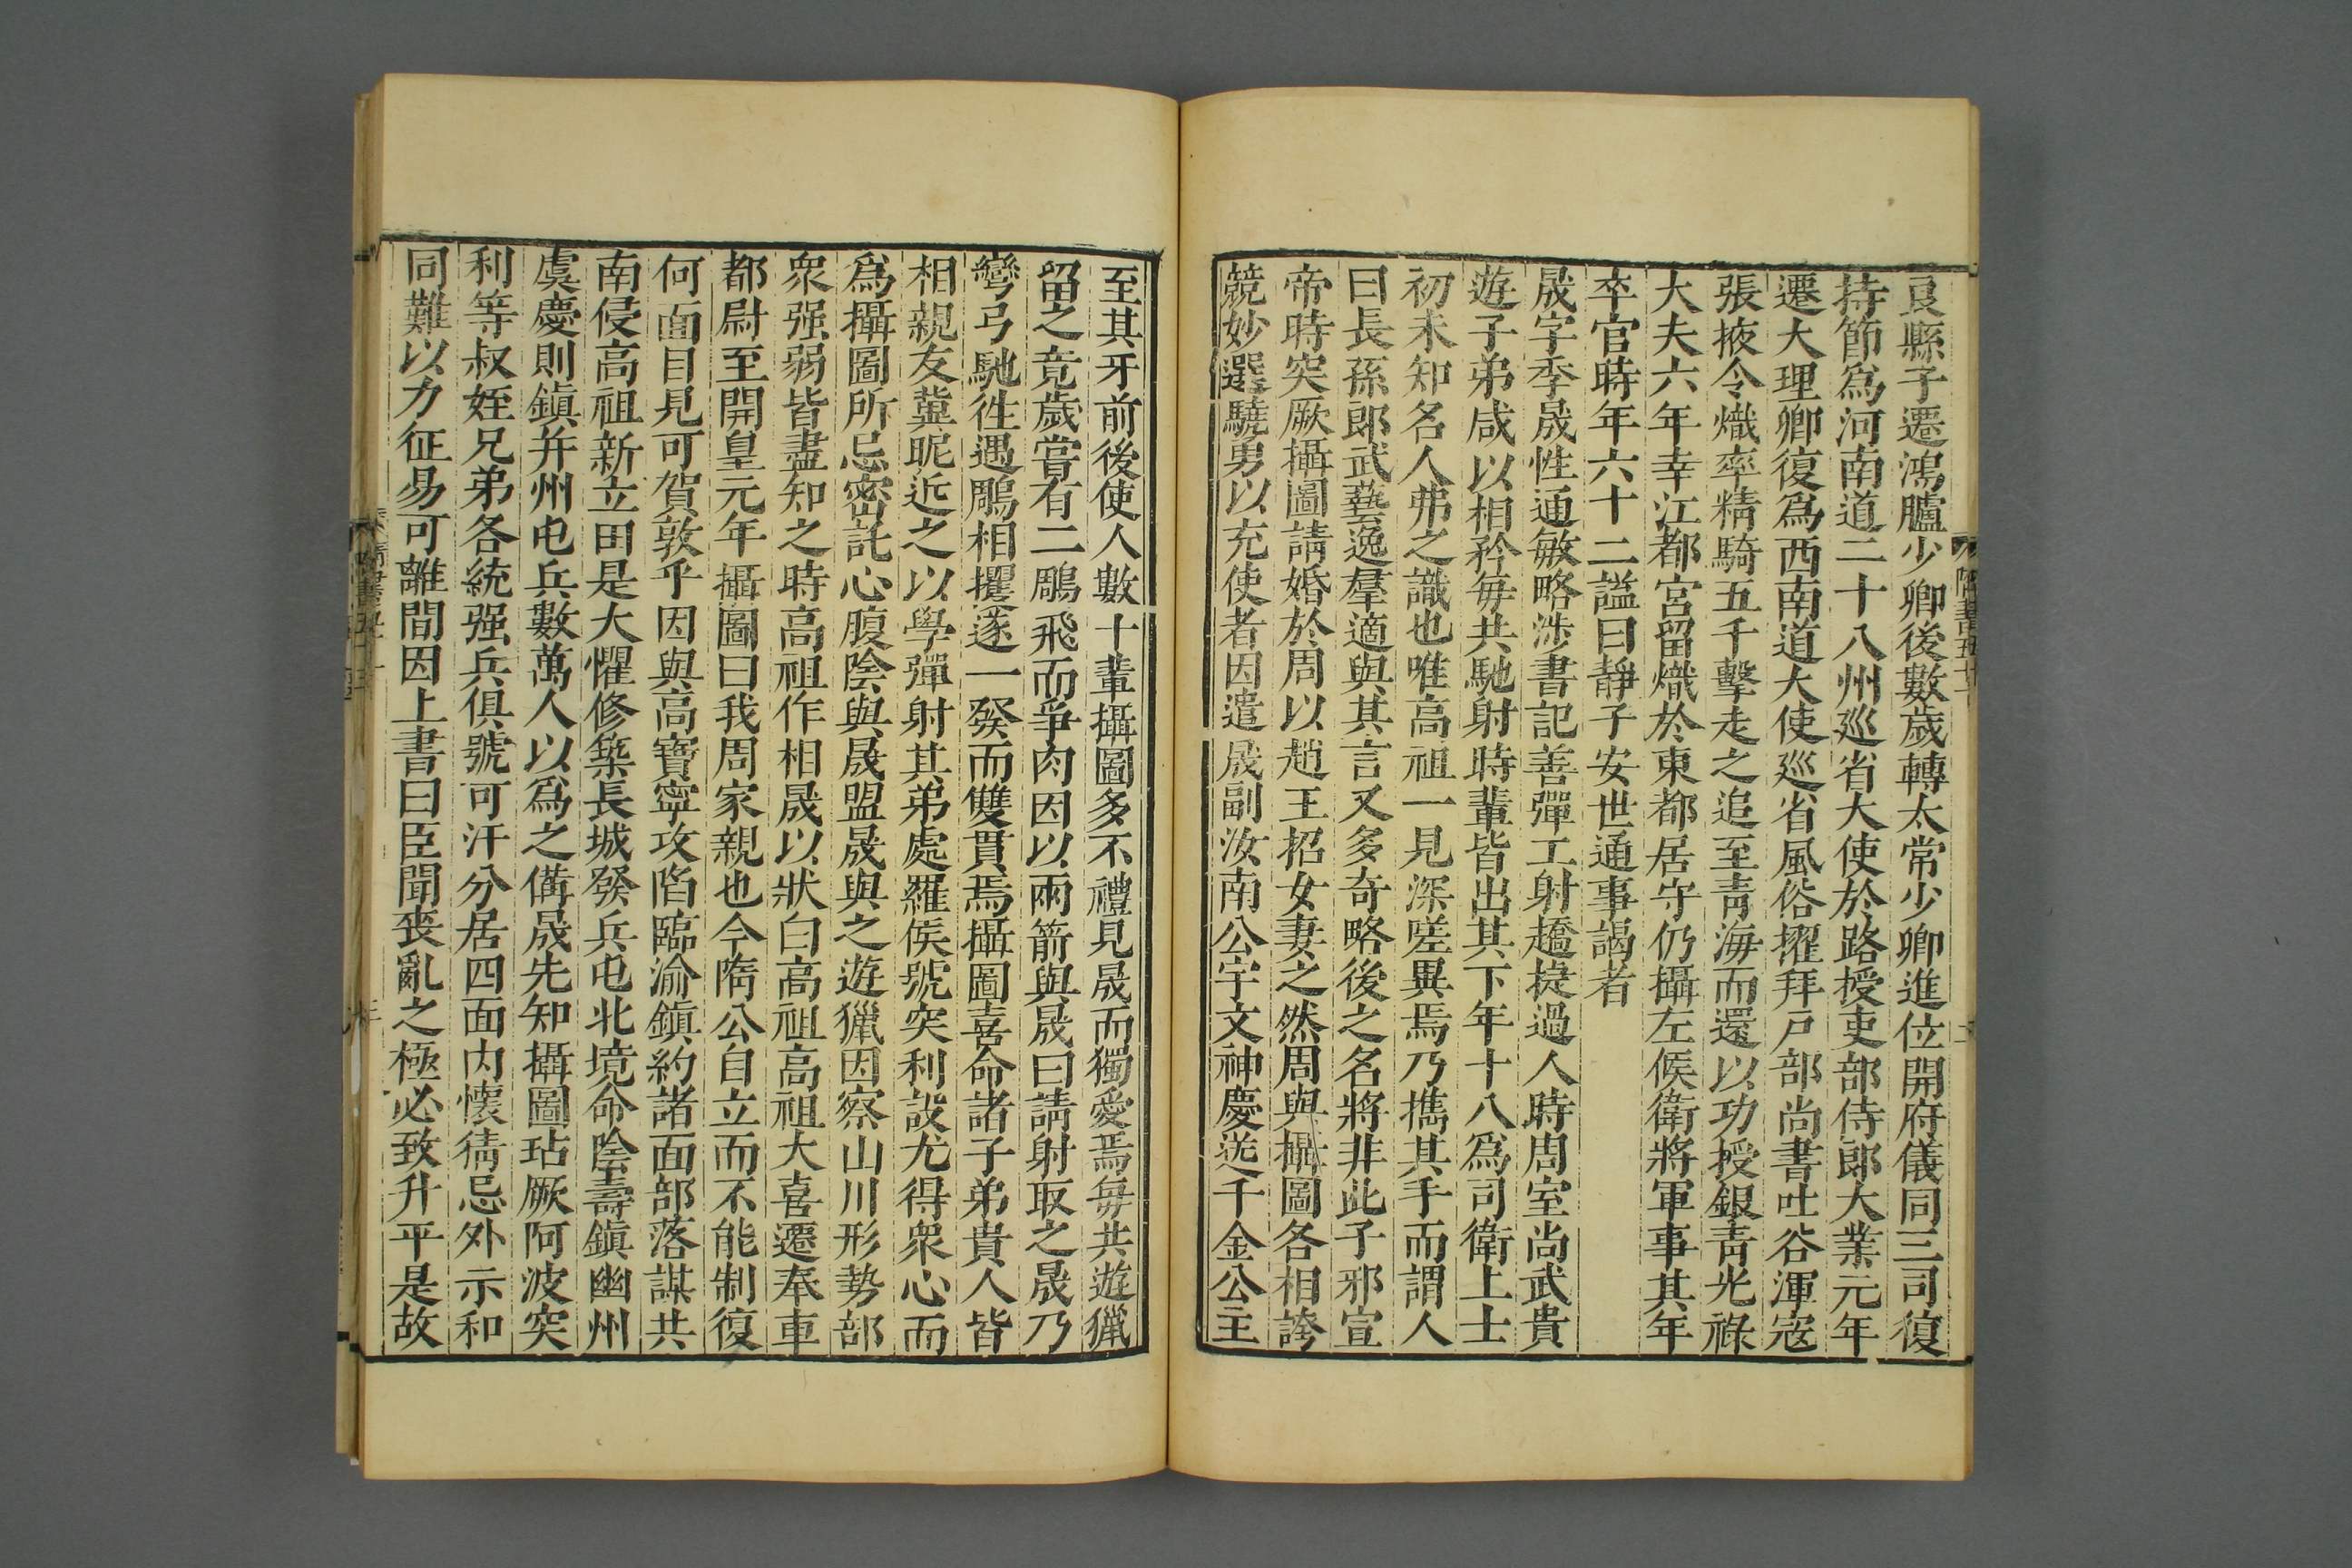 良縣子遷鴻臚少卿後數歲轉太常少卿進位開府儀同三司復
持節爲河南道二十八州巡省大使於路授吏部侍郎大業元年
遷大理卿復爲西南道大使巡省風俗擢拜戸部尚書吐谷渾寇
張掖令熾率精騎五千擊走之追至青海而還以功授銀青光祿
大夫六年幸江都宮留熾於東都居守仍攝左候衛將軍事其年
卒官時年六十二謚曰靜子安世通事謁者
晟字季晟性通敏略涉書記善彈工射趫捷過人時周室尚武貴
遊子弟咸以相矜每共馳射時輩皆出其下年十八爲司衛上士
初未知名人弗之識也唯高祖一見深嗟異焉乃攜其手而謂人
曰長孫郎武藝逸羣適與其言又多奇略後之名將非此子邪宣
帝時突厥攝圖請婚於周以趙王招女妻之然周與攝圖各相誇
競妙選驍勇以充使者因遣晟副汝南公宇文神慶送千金公主
至其牙前後使人數十輩攝圖多不禮見晟而獨愛焉每共遊獵
留之竟歲嘗有二鵰飛而爭肉因以兩箭與晟曰請射取之晟乃
彎弓馳往遇鵰相攫遂一發而雙貫焉攝圖喜命諸子弟貴人皆
相親友冀昵近之以學彈射其弟處羅侯號突利設尤得衆心而
爲攝圖所忌密託心腹陰與晟盟晟與之遊獵因察山川形勢部
衆强弱皆盡知之時高祖作相晟以狀白高祖高祖大喜遷奉車
都尉至開皇元年攝圖曰我周家親也今隋公自立而不能制復
何面目見可賀敦乎因與高寶寧攻陷臨渝鎮約諸面部落謀共
南侵高祖新立由是大懼修築長城發兵屯北境命陰壽鎮幽州
虞慶則鎮并州屯兵數萬人以爲之備晟先知攝圖玷厥阿波突
利等叔姪兄弟各統强兵俱號可汗分居四面内懷猜忌外示和
同難以力征易可離間因上書曰臣聞喪亂之極必致升平是故